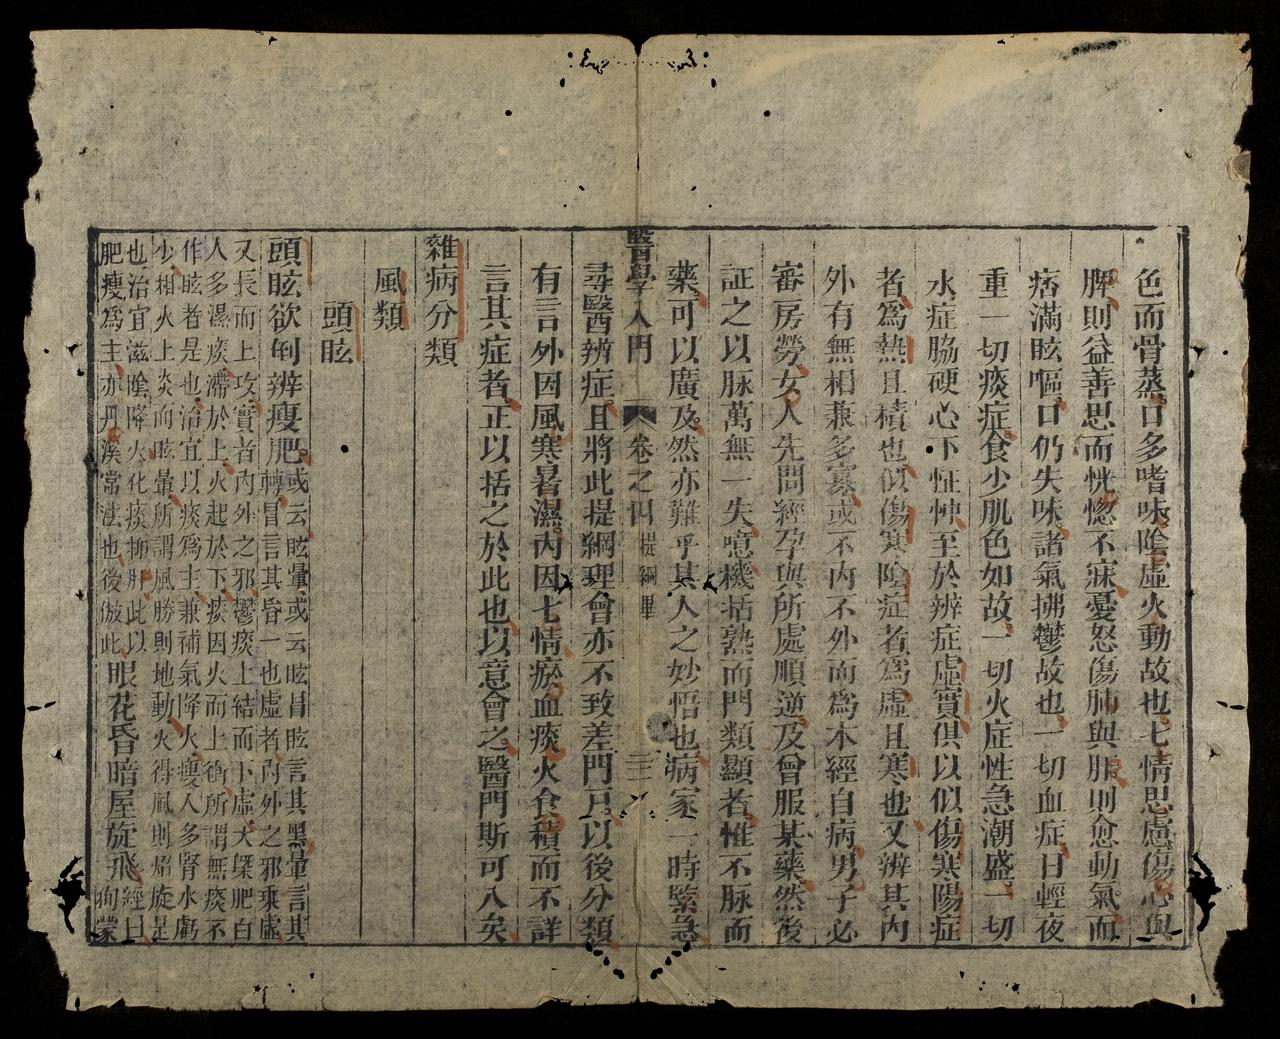 色而骨蒸口多嗜味陰虛火動故也七情思慮傷心與
脾則益善思而恍惚不寐憂怒傷肺與肝則愈動氣而
痞滿眩嘔口仍失味諸氣拂鬱故也一切血症日輕夜
重一切痰症食少肌色如故一切火症性急潮盛一切
水症脇硬心下怔忡至於辨症虛實俱以似傷寒陽症
者為熱且積也似傷寒陰症者為虛且寒也又辨其內
外有無相兼多寡或不內不外而為本經自病男子必
審房勞女人先問經孕與所處順逆及曾服某藥然後
証之以脉萬無一失噫機括熟而門類顯者惟不脉而
藥可以廣及然亦難乎其人之妙悟也病家一時緊急
尋醫辨症且將此提綱理會亦不致差門戶以後分類
醫學入門 卷之四 提綱畢 三
有言外因風寒暑濕內因七情瘀血痰火食積而不詳
言其症者正以括之於此也以意會之醫門斯可入矣
雜病分類
風類
頭眩
頭眩欲倒辨瘦肥或云眩暈或云眩昌眩言其黑暈言其
轉冒言其昏一也虛者內外之邪乘虛
又長而上攻實者內外之邪鬱痰上結而下虛大槩肥白
人多濕痰滯於上火起於下痰因火而上衝所謂無痰不
作眩者是也治宜以痰為主兼補氣降火瘦人多腎水虧
少相火上炎而眩暈所謂風勝則地動火得風則焰旋是
也治宜滋陰降火化痰抑肝此以
肥瘦為主亦丹溪常法也後倣此眼花昏暗屋旋飛經曰
徇蒙